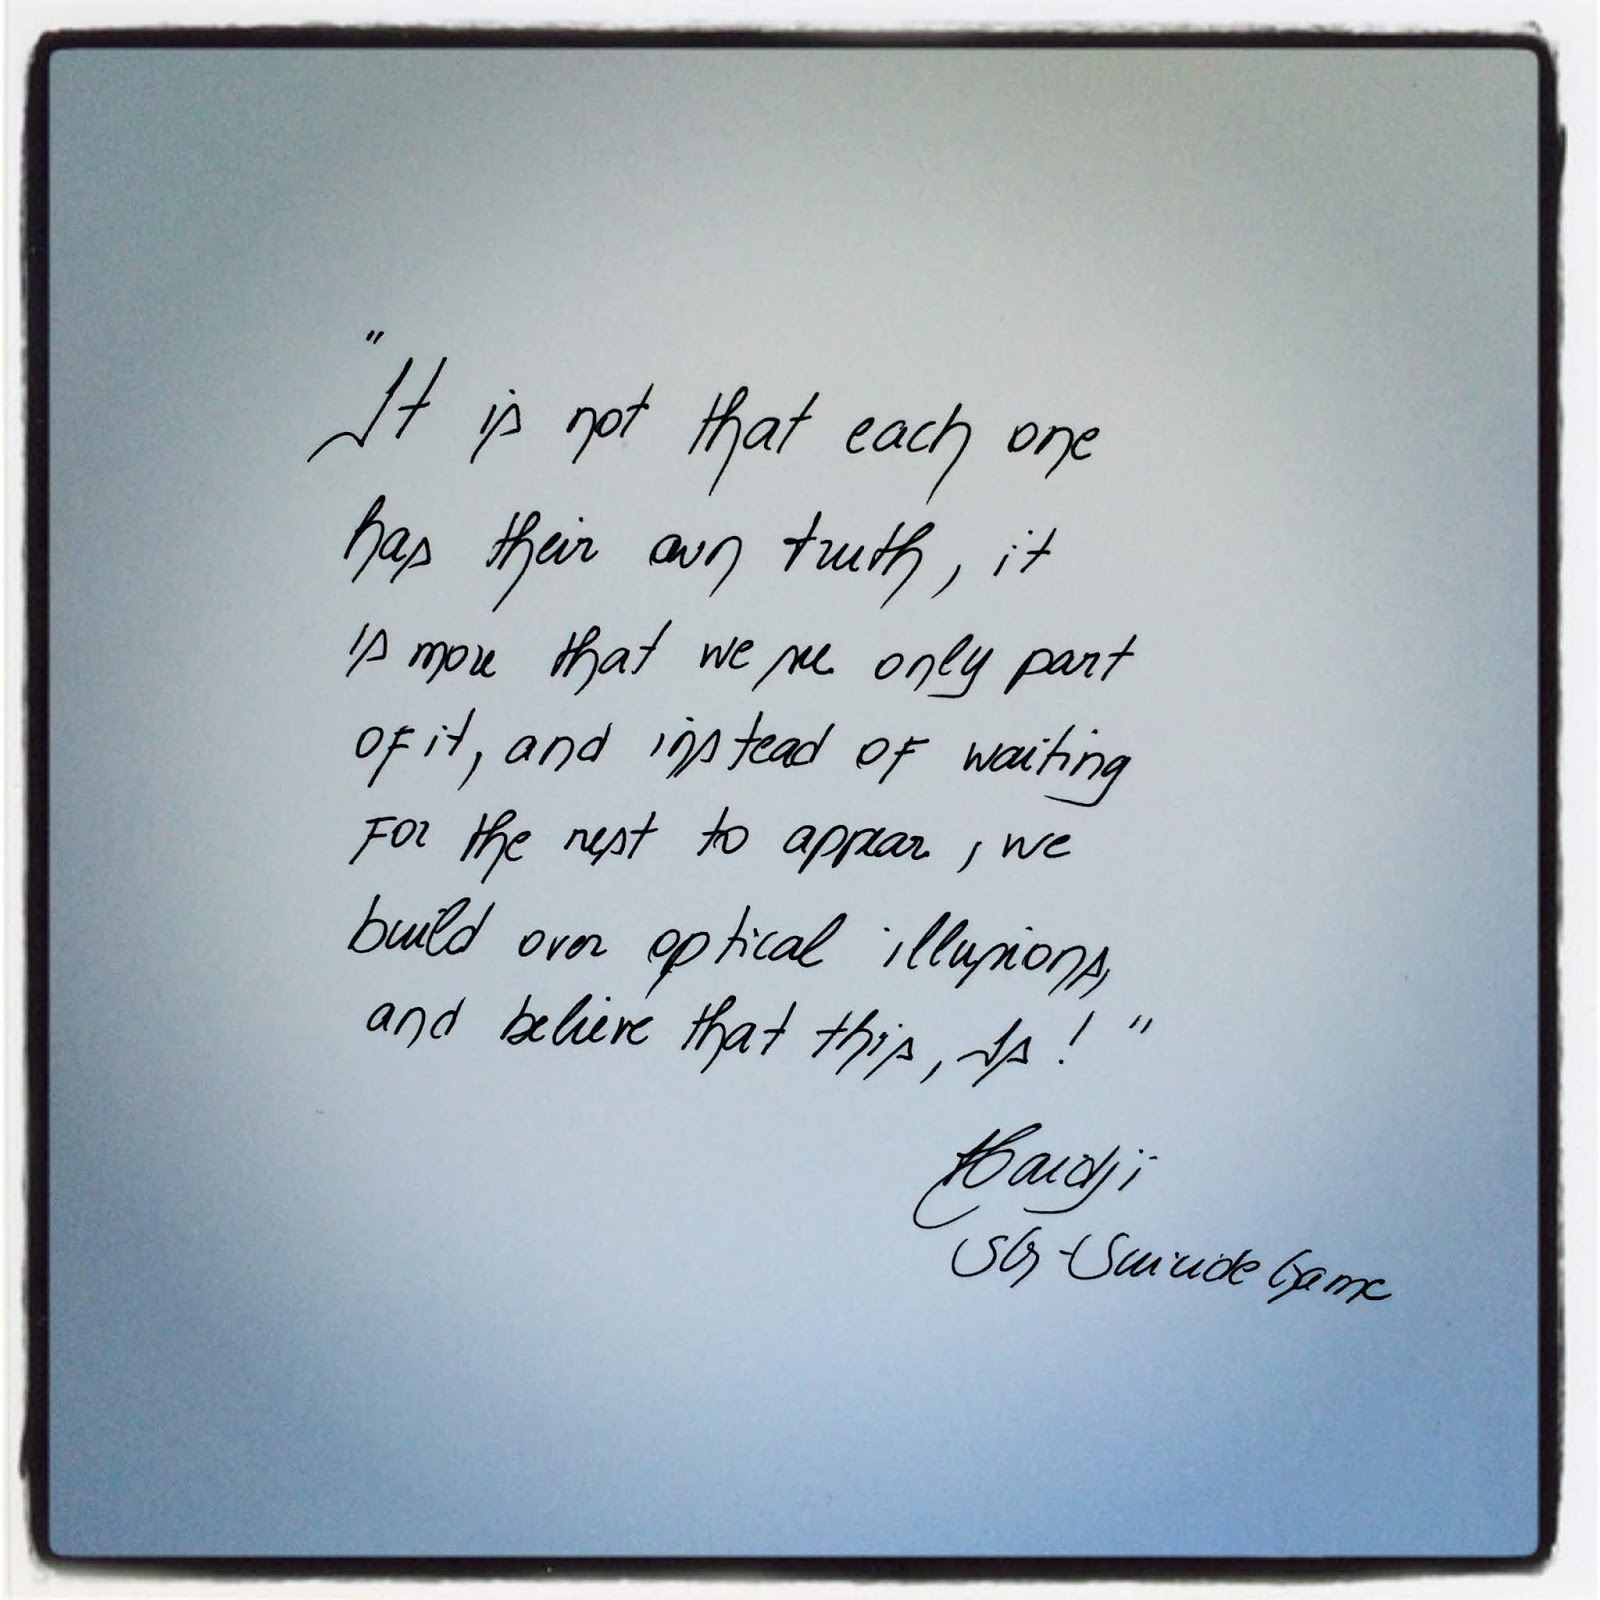 "It is not that each one
has their own truth, it
is more that we see only part
of it, and instead of waiting
for the rest to appear, we
build over optical illusions,
and believe that this, Is!"
Haidji
SG-Suicide Game